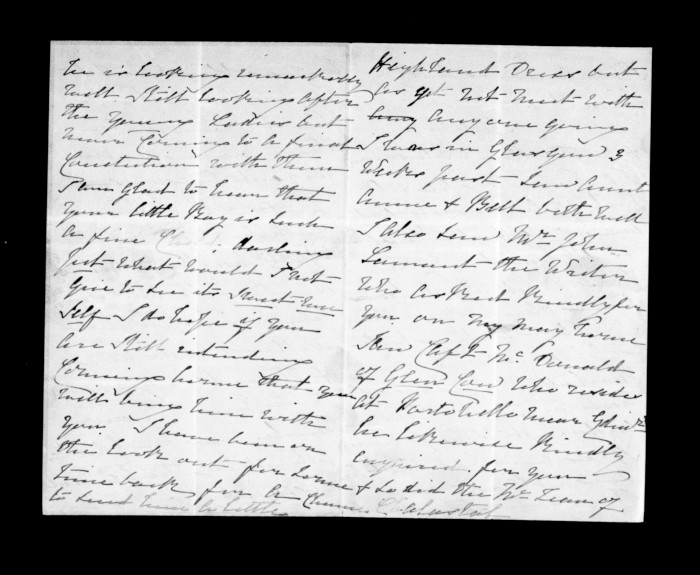 he is looking remarkably
well. Still looking after
the young Ladies but
never Coming to a final
Conclusion with them
I am Glad to hear that
your little Boy is such
a fine Child; darling
Just what would I not
Give to see its Sweet wee
Self I do hope if you
are Still intending
Coming home that you
will bring him with
you. I have been on
the look out for some
time back for a Chance
to send him a little
Highland Dress but
has yet not meet with
any one going
I was in Glasgow 3
weeks past saw Aunt
Anne & Bell both well
I also saw Mr. John
Lamont the Writer
Who asked Kindly for
you on my way home
Saw Capt. Mc. Donald
of Glen Coe Who resides
at Portobello near Edinr.
he likewise Kindly
enquired for you
& so did the Mc Lean of